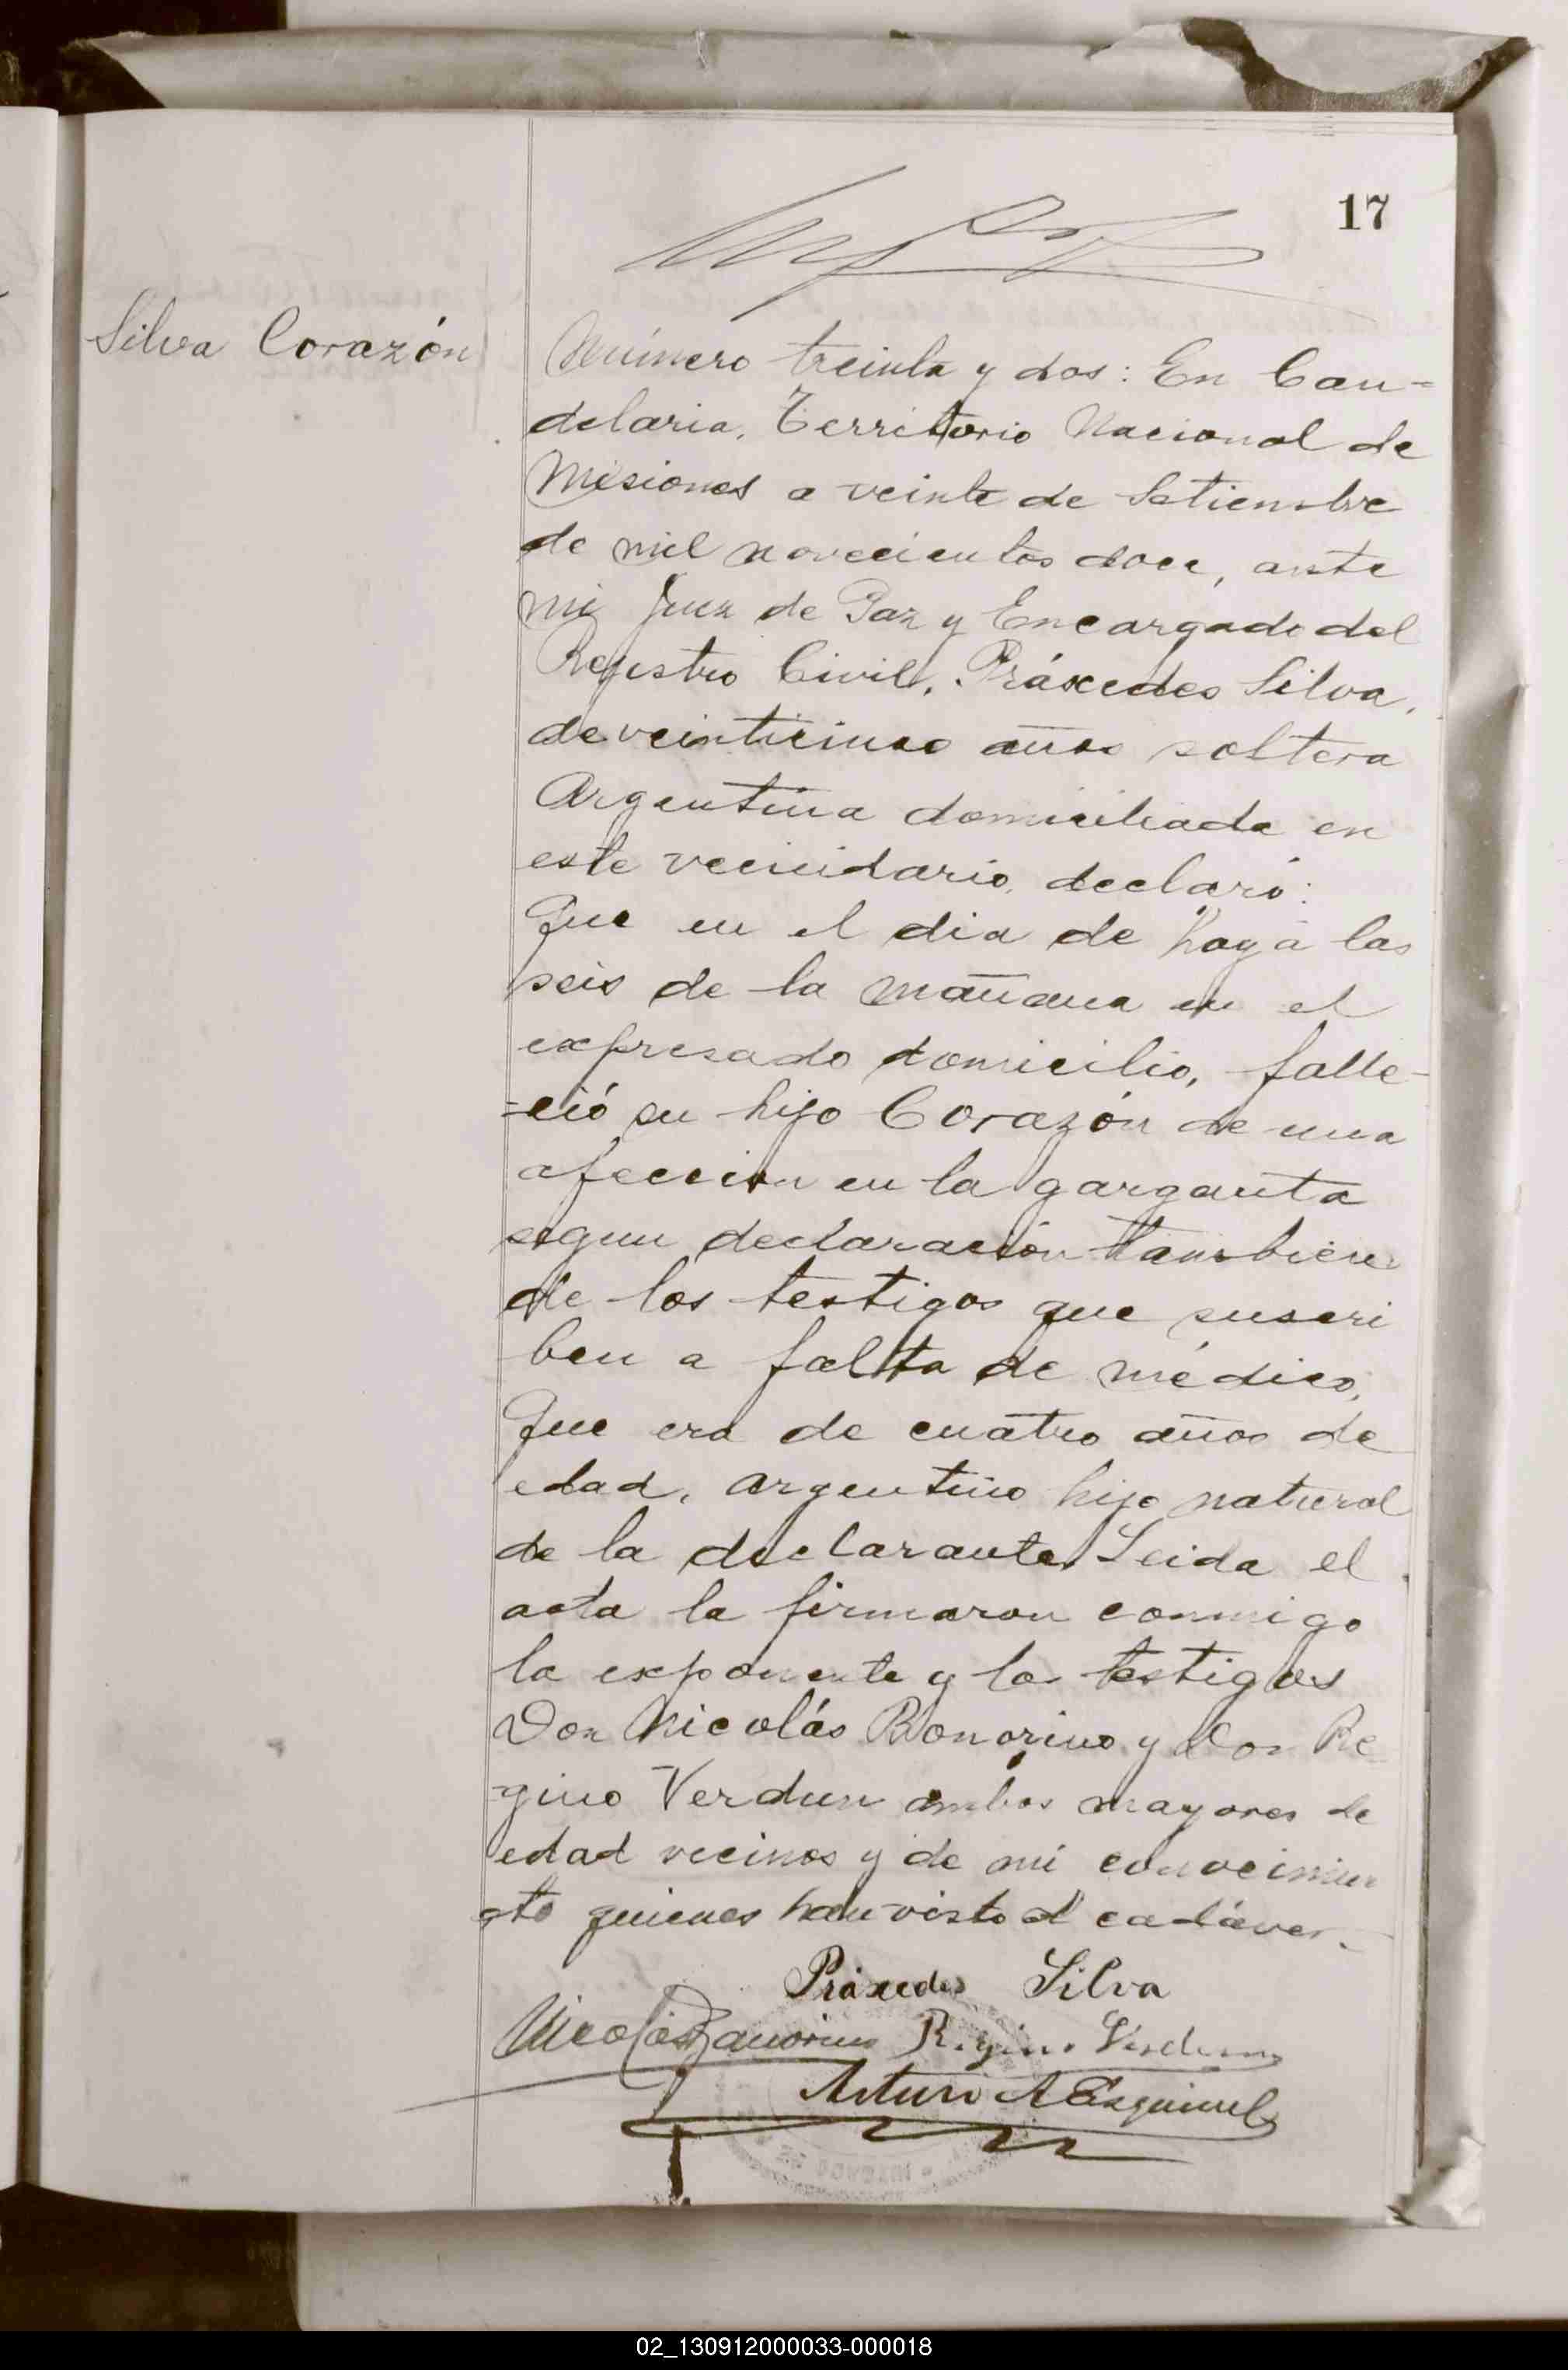 17
Silva Corazón
Número treinta y dos: En Can=
delaria, Territorio Nacional de
Misiones a veinte de Setiembre
de mil novecientos doce, ante
mi Juez de Paz y Encargado del
Registro Civil, Práxedes Silva,
de veinticinco años soltera
Argentina domiciliada en
este vecindario, declaró:
Que en el dia de hoy a las
seis de la mañana en el
expresado domicilio, falle-
=ció su hijo Corazón de una
afeccion en la garganta
segun declaración tambien
de los testigos que suscri
ben a falta de médico,
Que era de cuatro años de
edad, argentino hijo natural
de la declarante, Leida el
acta la firmaron conmigo
la exponente y los testigos
Don Nicolás Bonorino y Don Re
=gino Verdun ambos mayores de
edad vecinos y de mi conocimien
to quienes han visto el cadáver.-
Práxedes Silva
Nicolás Bonorino Regino Verdun
Arturo A Esquivel
02_130912000033-000018